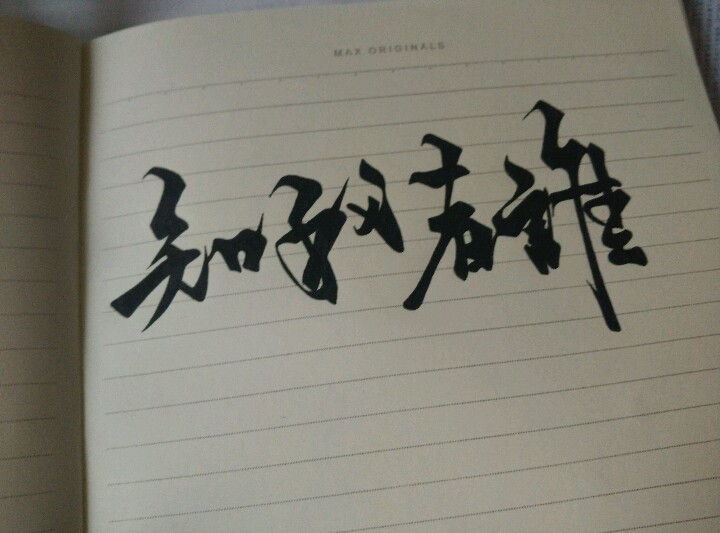 MAX ORIGINALS
知我者誰